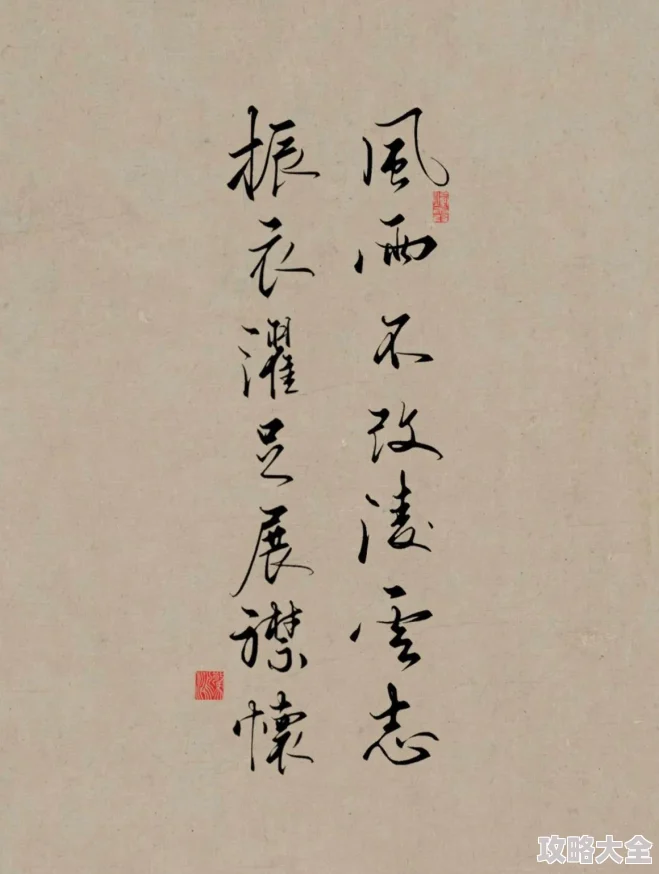 風雨不改凌雲志
振衣濯足展襟懷
攻略大全